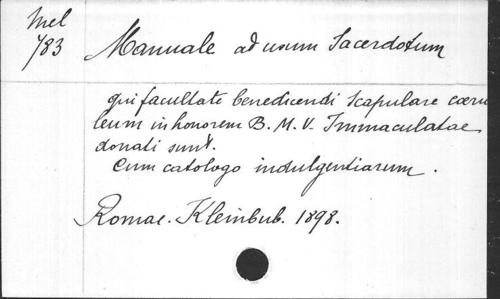 Mel
783
Manuale ad usum Sacerdotum
qui facultate benedicendi Scapulare cœru
leum in honorem B. M. V. Immaculatae
donati sunt.
Cum catologo indulgentiarum.
Romae. Kleinbub. 1898.